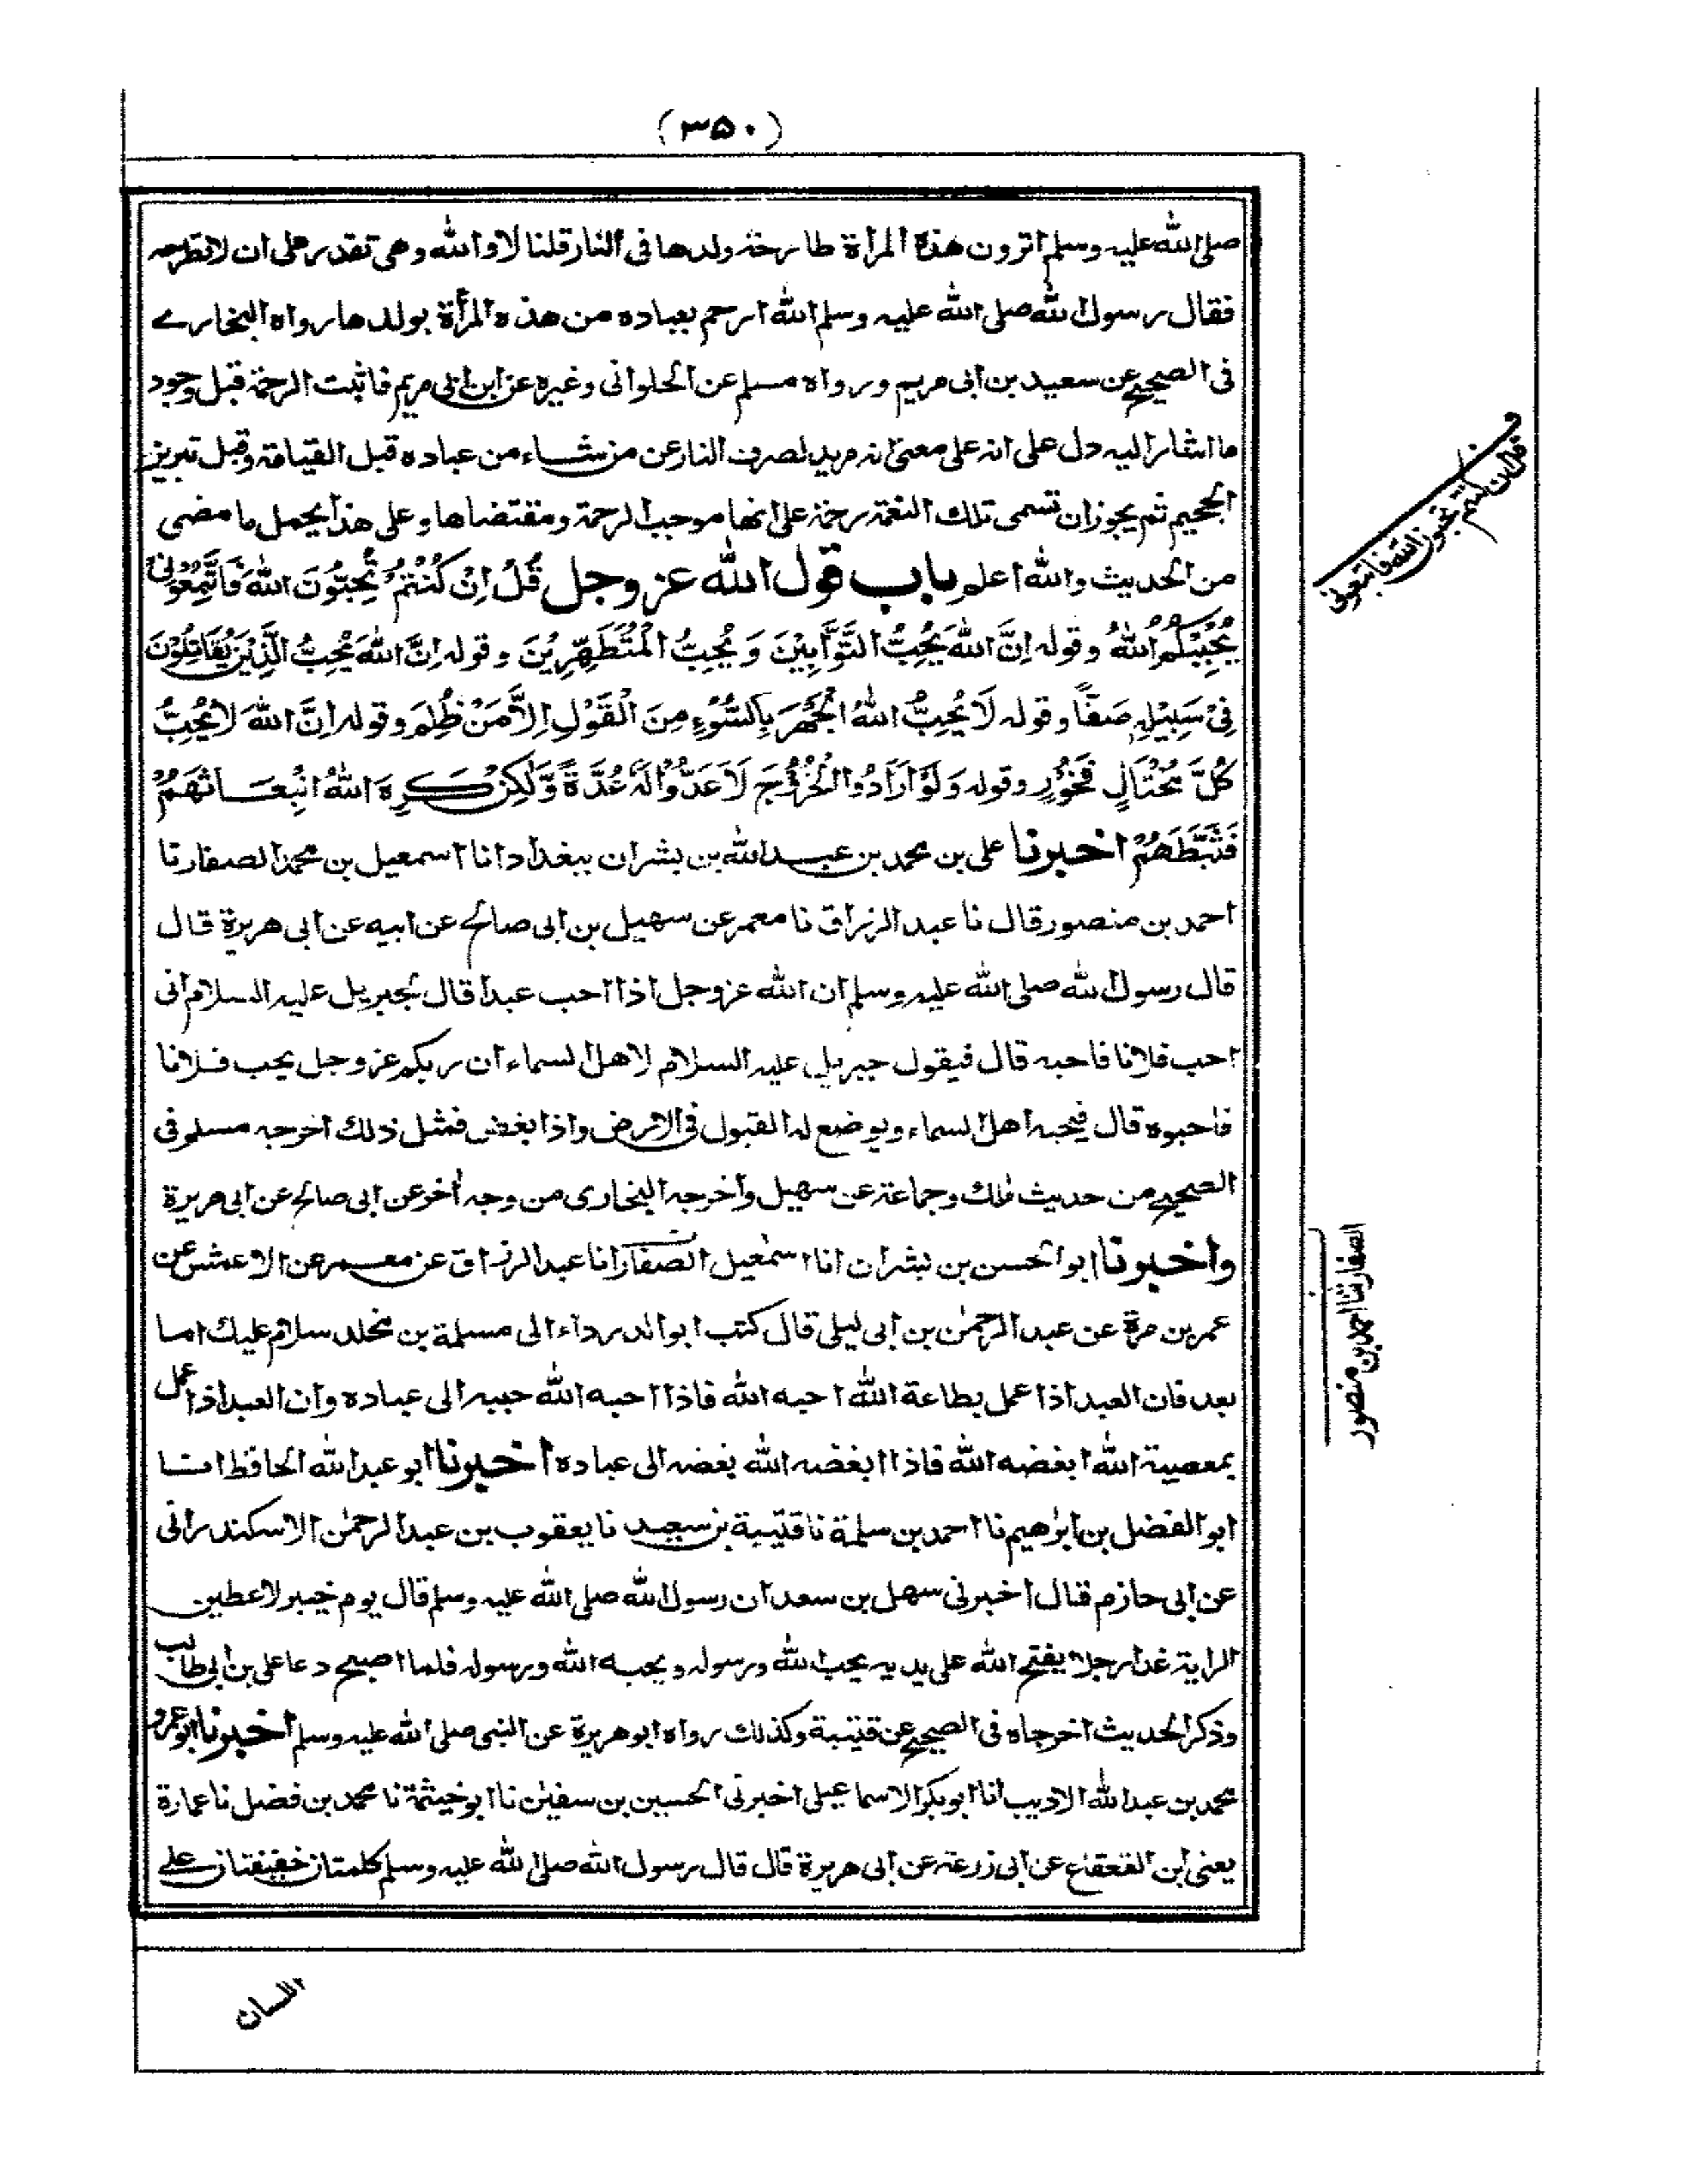 (٣٥٠)
صلى الله عليه وسلم اترون هذه المرأة طارحة ولدها فى النار قلنا لا والله وهى تقدر على ان لا تطرحه
فقال رسول الله صلى الله عليه وسلم الله ارحم بعباده من هذه المرأة بولدها رواه البخارے
فى الصحيح عن سعيد بن ابى مريم ورواه مسلم عن الحلوانى وغيره عن ابن ابى مريم فاثبت الرحمة قبل وجود
ما اشار اليه دل على انه على معنى انه مريد لصرف النار عن من شاء من عباده قبل القيامة وقبل تبريز
الجحيم ثم يجوز ان تسمى تلك النعمة رحمة على انها موجب الرحمة ومقتضاها وعلى هذا يحمل ما مضى
من الحديث والله اعلم باب قول الله عز وجل قُلْ اِنْ كُنْتُمْ تُحِبُّوْنَ اللهَ فَاتَّبِعُوْنِىْ
يُحْبِبْكُمُ اللهُ وقوله اِنَّ اللهَ يُحِبُّ التَّوَّابِيْنَ وَيُحِبُّ الْمُتَطَهِّرِيْنَ وقوله اِنَّ اللهَ يُحِبُّ الَّذِيْنَ يُقَاتِلُوْنَ
فِىْ سَبِيْلِهٖ صَفًّا وقوله لَا يُحِبُّ اللهُ الْجَهْرَ بِالسُّوْءِ مِنَ الْقَوْلِ اِلَّا مَنْ ظُلِمَ وقوله اِنَّ اللهَ لَا يُحِبُّ
كُلَّ مُخْتَالٍ فَخُوْرٍ وقوله وَلَوْ اَرَادُوا الْخُرُوْجَ لَاَعَدُّوْا لَهٗ عُدَّةً وَّلٰكِنْ كَرِهَ اللهُ انْبِعَاثَهُمْ
فَثَبَّطَهُمْ اخبرنا على بن محمد بن عبد الله بن بشران ببغداد انا اسمعيل بن محمد الصفار نا
احمد بن منصور قال نا عبد الرزاق نا معمر عن سهيل بن ابى صالح عن ابيه عن ابى هريرة قال
قال رسول الله صلى الله عليه وسلم ان الله عز وجل اذا احب عبدا قال لجبريل عليه السلام انى
احب فلانا فاحبه قال فيقول جبريل عليه السلام لاهل السماء ان ربكم عز وجل يحب فلانا
فاحبوه قال فيحبه اهل السماء ويوضع له القبول فى الارض واذا بغض فمثل ذلك اخرجه مسلم فى
الصحيح من حديث ملك وجماعة عن سهيل واخرجه البخارى من وجه أخر عن ابى صالح عن ابى هريرة
واخبرنا ابو الحسن بن بشران انا اسمٰعيل الصفار انا عبد الرزاق عن معمر عن الاعمش عن
عمر بن مرة عن عبد الرحمٰن بن ابى ليلى قال كتب ابو الدرداء الى مسلمة بن مخلد سلام عليك اما
بعد فان العبد اذا عمل بطاعة الله احبه الله فاذا احبه الله حببه الى عباده وان العبد اذا عمل
بمعصية الله ابغضه الله فاذا ابغضه الله بغضه الى عباده اخبرنا ابو عبد الله الحافظ انا
ابو الفضل بن ابرٰهيم نا احمد بن سلمة نا قتيبة بن سعيد نا يعقوب بن عبد الرحمٰن الاسكندرانى
عن ابى حازم قال اخبرنى سهل بن سعد ان رسول الله صلى الله عليه وسلم قال يوم خيبر لاعطين
الراية غدا رجلا يفتح الله على يديه يحب الله ورسوله ويحبه الله ورسوله فلما اصبح دعا على بن ابى طالب
وذكر الحديث اخرجاه فى الصحيح عن قتيبة وكذلك رواه ابو هريرة عن النبى صلى الله عليه وسلم اخبرنا ابو عمرو
محمد بن عبد الله الاديب انا ابو بكر الاسماعيلى اخبرنى الحسين بن سفيٰن نا ابو خيثمة نا محمد بن فضل نا عمارة
يعنى ابن القعقاع عن ابى زرعة عن ابى هريرة قال قال رسول الله صلى الله عليه وسلم كلمتان خفيفتان على
قل ان كنتم تحبون الله فاتبعونى
الصفار ثنا احمد بن منصور
اللسان